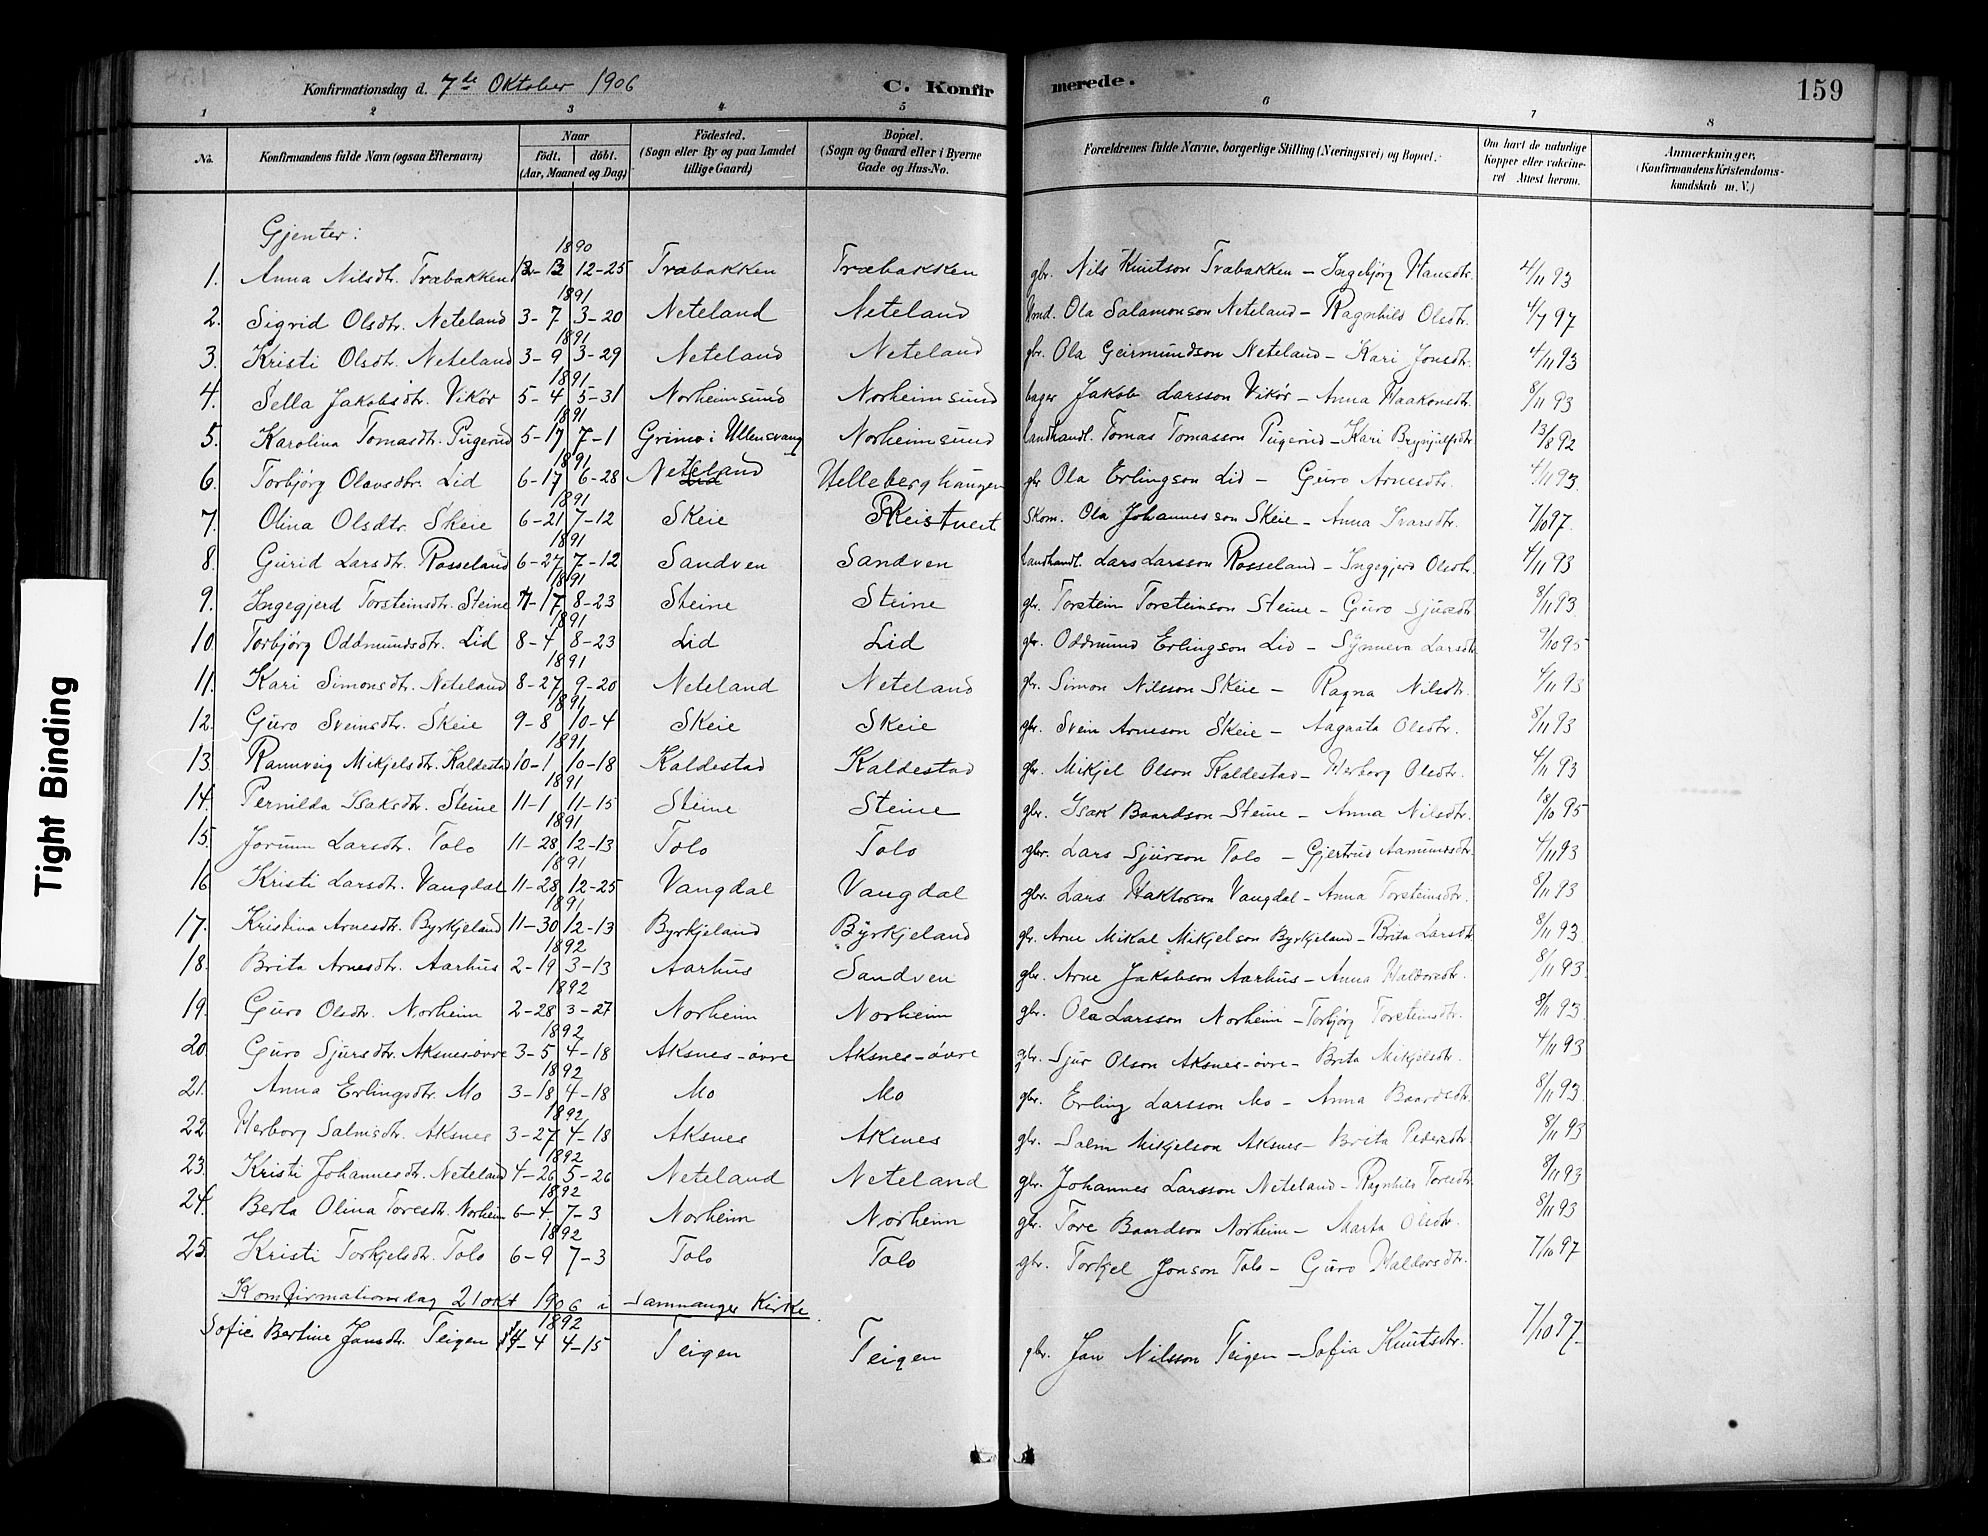 Konfirmationsdag d. 7de Oktober 1906 C. Konfirmerede. 159
1 2 3 4 5 6 7 8
No. Konfirmandens fulde Navn (ogsaa Efternavn) Naar födt. döbt. (Aar, Maaned og Dag) Födested. (Sogn eller By og paa Landet tillige Gaard) Bopæl. (Sogn og Gaard eller i Byerne Gade og Hus-No. Forældrenes fulde Navne, borgerlige Stilling (Næringsvei) og Bopæl. Om havt de naturlige Kopper eller vakcineret Attest herom. Anmærkninger. (Konfirmandens Kristendomskundskab m. V.)
Gjenter:
1890
1. Anna Nilsdtr. Træbakken 12-25 Træbakken Træbakken gbr. Nils Knutson Træbakken – Ingebjörg Hansdtr. 4/11 93
1891
2. Sigrid Olsdtr. Neteland 3-7 3-20 Neteland Neteland Ola Salamonson Neteland – Ragnhild Olsdtr. 4/7 97
1891
3. Kristi Olsdtr. Neteland 3-9 3-29 Neteland Neteland gbr. Ola Geirmundson Neteland – Kari Jonsdtr. 4/11 93
1891
4. Sella Jakobsdtr. Vikör 5-4 5-31 Norheimsund Norheimsund bager Jakob Larsson Vikör – Anna Haakonsdtr. 8/11 93
1891
5. Karolina Tomasdtr. Pugerud 5-17 7-1 Grimo i Ullensvang Norheimsund Landhandl. Tomas Tomasson Pugerud – Kari Brynjulfsdtr 13/8 92
1891
6. Torbjörg Olavsdtr. Lid 6-17 6-28 Neteland Lid Helleberghaugen gbr Ola Erlingson Lid – Guro Arnesdtr. 4/11 93
1891
7. Olina Olsdtr. Skeie 6-21 7-12 Skeie Skeistveit Skom. Ola Johannesson Skeie – Anna Ivarsdtr. 7/10 97.
1891
8. Gurid Larsdtr. Rosseland 6-27 7-12 Sandven Sandven Landhandl. Lars Larsson Rosseland – Ingegjerd Olsdtr. 4/11 93
1891
9. Ingegjerd Torsteinsdtr. Steine 7-17 8-23 Steine Steine gbr. Torstein Torsteinson Steine – Guro Sjursdtr 8/11 93
1891
10. Torbjörg Oddmundsdtr. Lid 8-4 8-23 Lid Lid gbr. Oddmund Erlingson Lid – Synneva Larsdtr 9/10 95
1891
11. Kari Simonsdtr. Neteland 8-27 9-20 Neteland Neteland gbr. Simon Nilsson Skeie – Ragna Nilsdtr. 4/11 93
1891
12. Guro Sveinsdtr. Skeie 9-8 10-4 Skeie Skeie gbr. Svein Arneson Skeie – Aagaata Olsdtr. 8/11 93
1891
13. Rannveig Mikjelsdtr. Kaldestad 10-1 10-18 Kaldestad Kaldestad gbr. Mikjel Olson Kaldestad – Herborg Olsdtr. 4/11 93
1891
14. Pernilda Isaksdtr. Steine 11-1 11-15 Steine Steine gbr. Isak Baardson Steine – Anna Nilsdtr. 18/10 95
1891
15. Jorunn Larsdtr. Tolo 11-28 12-13 Tolo Tolo gbr. Lars Sjurson Tolo – Gjertrud Aamundsdtr. 4/11 93
1891
16 Kristi Larsdtr. Vangdal 11-28 12-25 Vangdal Vangdal gbr. Lars Haktorson Vangdal – Anna Torsteinsdtr. 8/11 93
1891
17. Kristina Arnesdtr. Byrkjeland 11-30 12-13 Byrkjeland Byrkjeland gbr. Arne Mikal Mikjelson Byrkjeland – Brita Larsdtr 8/11 93
1892
18. Brita Arnesdtr. Aarhus 2-19 3-13 Aarhus Sandven gbr. Arne Jakobson Aarhus – Anna Haldorsdtr. 8/11 93
1892
19. Guro Olsdtr. Norheim 2-28 3-27 Norheim Norheim gbr. Ola Larsson Norheim – Torbjörg Torsteinsdtr. 8/11 93
1892
20. Guro Sjursdtr. Aksnes-övre 3-5 4-18 Aksnes-övre Aksnes-övre gbr. Sjur Olson Aksnes-övre – Brita Mikjelsdtr. 4/11 93
1892
21. Anna Erlingsdtr. Mo 3-18 4-18 Mo Mo gbr. Erling Larsson Mo – Anna Baardsdtr. 8/11 93
1892
22. Herborg Salmsdtr. Aksnes 3-27 4-18 Aksnes Aksnes gbr. Salm Mikjelson Aksnes – Brita Pedersdtr. 8/11 93
1892
23. Kristi Johannesdtr. Neteland 4-26 5-26 Neteland Neteland gbr. Johannes Larsson Neteland – Ragnhild Toresdtr. 8/11 93
1892
24. Berta Olina Toresdtr. Norheim 6-4 7-3 Norheim Norheim gbr. Tore Baardson Norheim – Marta Olsdtr. 8/11 93
1892
25. Kristi Torkjelsdtr. Tolo 6-9 7-3 Tolo Tolo gbr. Torkjel Jonson Tolo – Guro Haldorsdtr. 7/10 97
Komfirmationsdag 21 okt 1906 i Samnanger Kirke.
1892
Sofie Bertine Jansdtr. Teigen 4-4 4-15 Teigen Teigen gbr. Jan Nilsson Teigen – Sofia Knutsdtr. 7/10 97.
Tight Binding